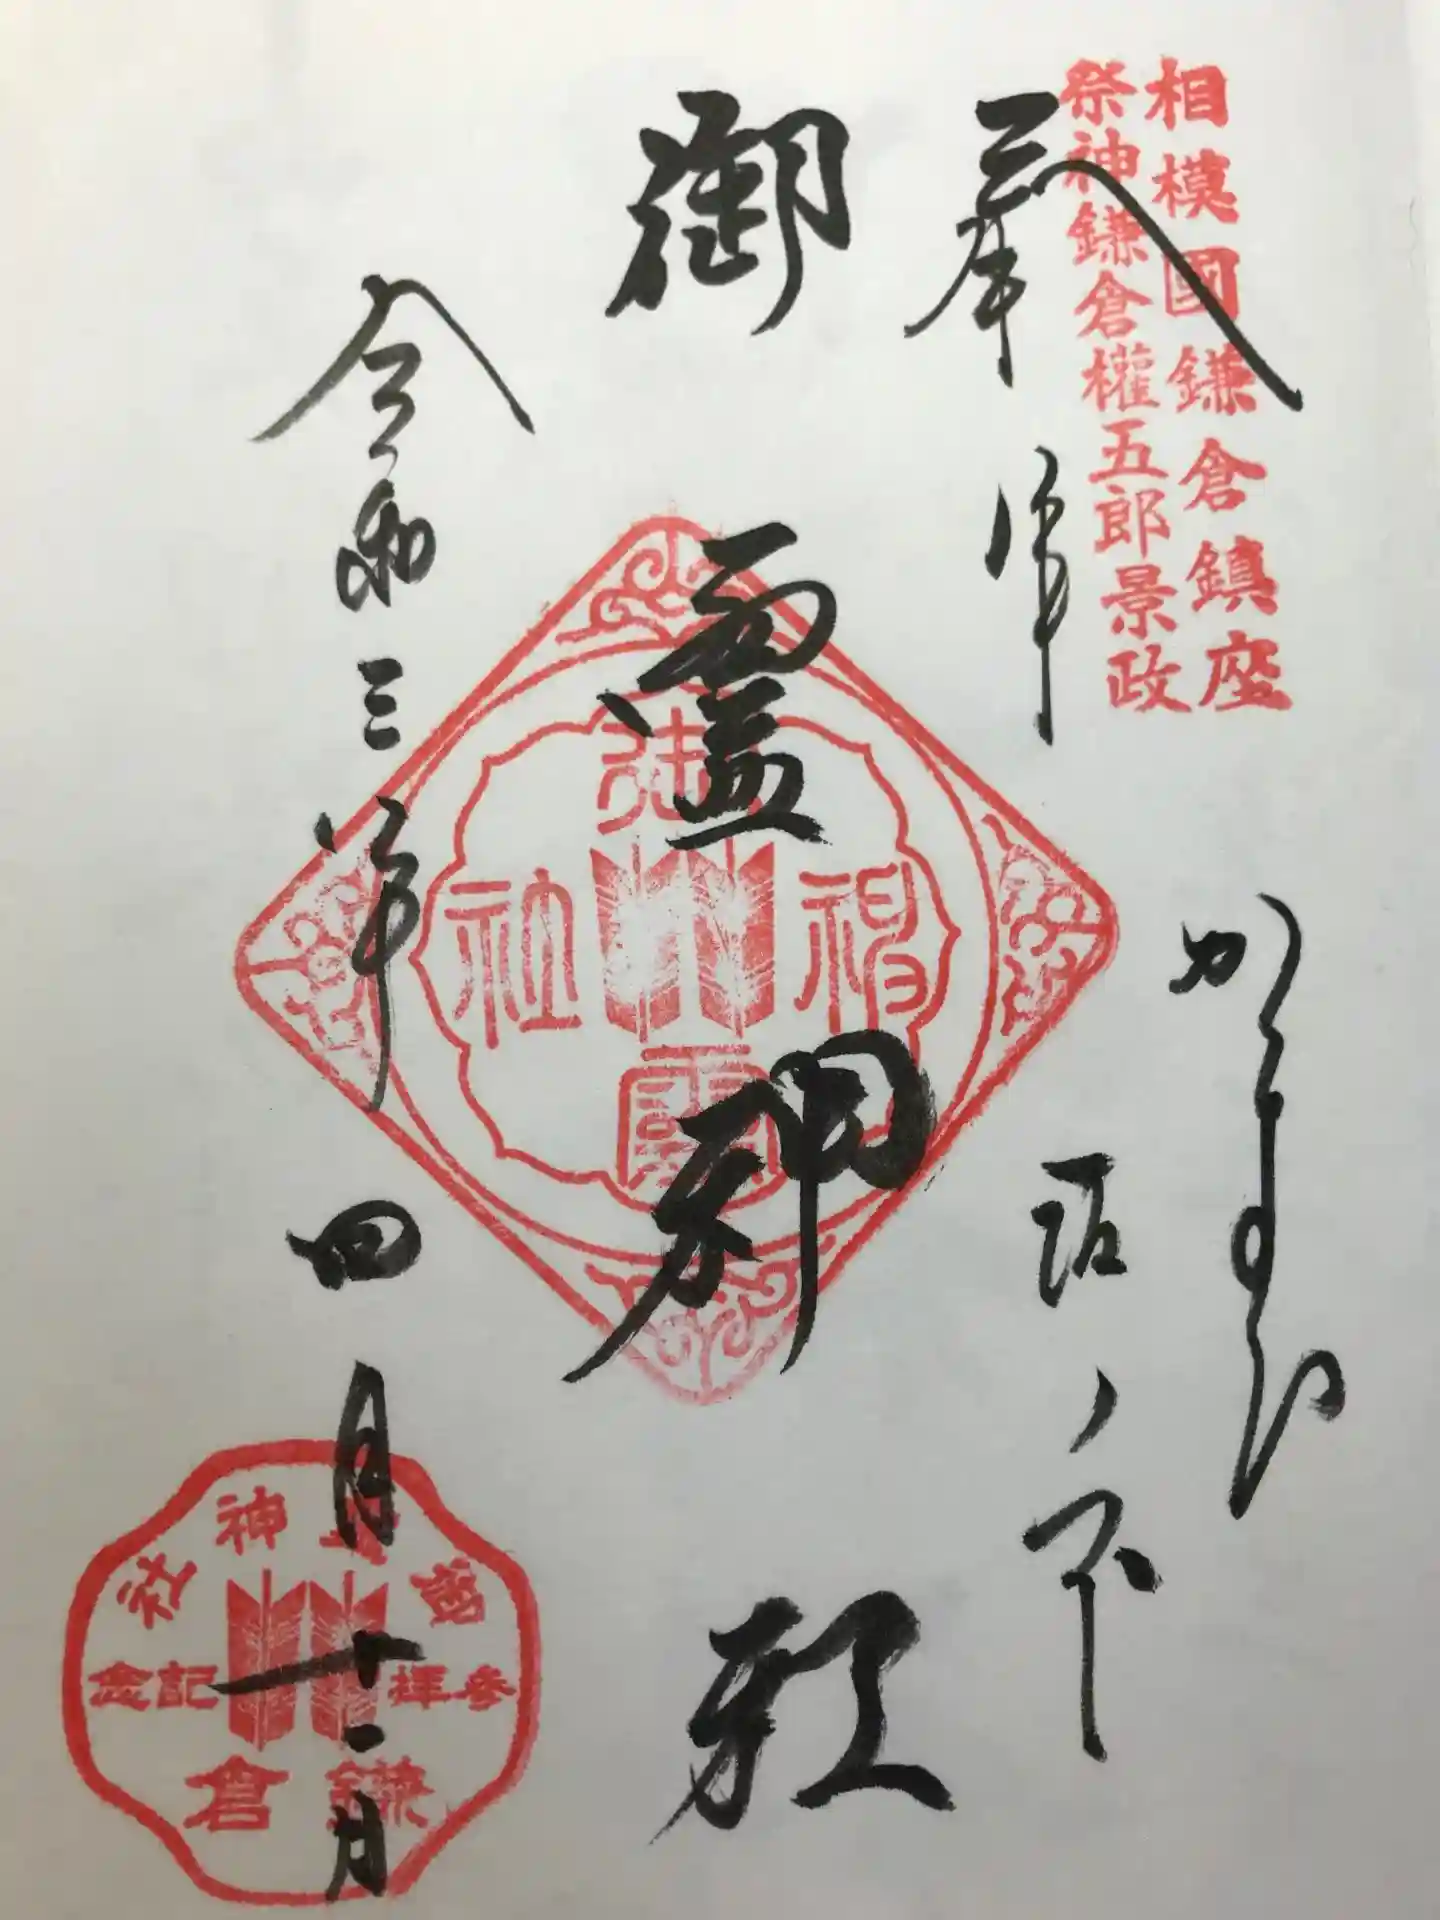 相模國鎌倉鎮座
祭神鎌倉權五郎景政
奉拝
かまくら
坂ノ下
御靈神社
御
神
社
靈
令和三年四月十一日
御靈神社
参拝記念
鎌倉